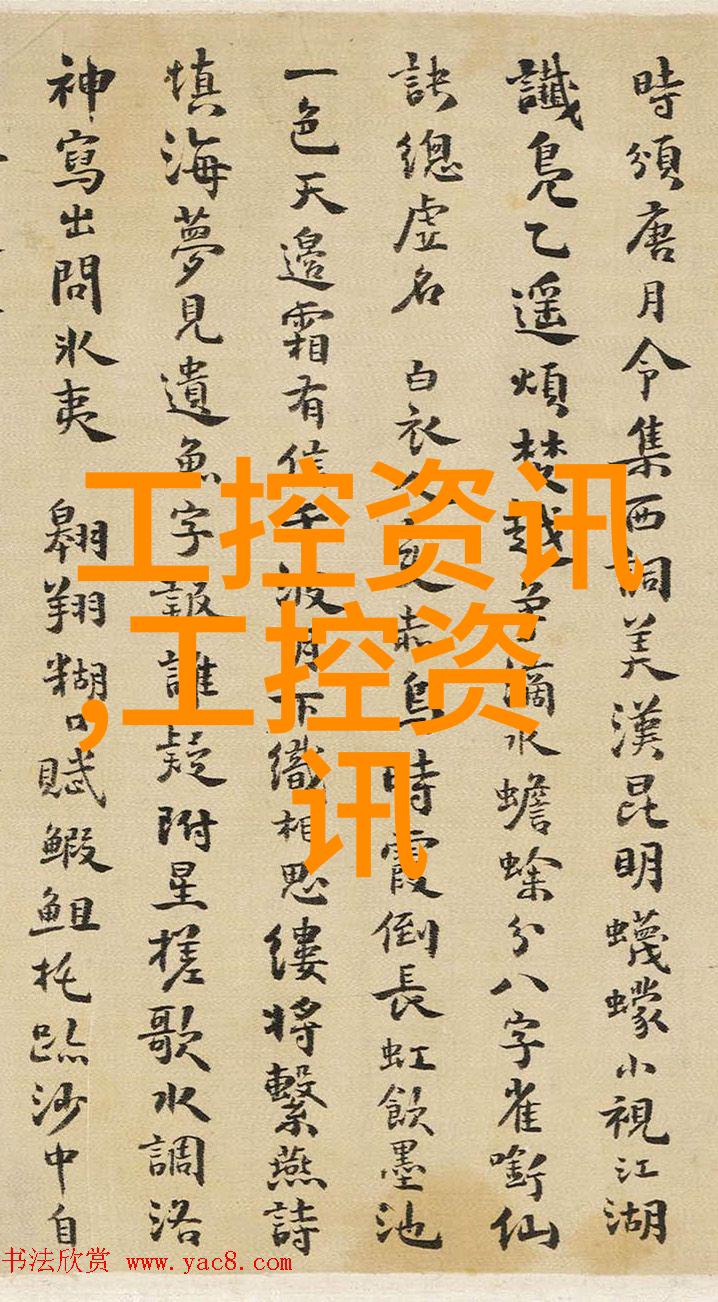 時頒唐月令集西詞美漢昆明蠛蠓小視江湖
讖鳧乙遥煩楚越爭滴水蟾蜍分八字雀銜仙
訣總虛名 白衣 烏時霞倒長虹飲墨池
一色天邊霜有信千波月下織相思縷將繫燕詩
填海夢見遺魚字報誰疑附星槎歌水調洛
神寫出問冰夷 翱翔糊口賦鰕䱉托跡沙中自
工控资讯
,工控资
讯
书法欣赏 www.yac8.com